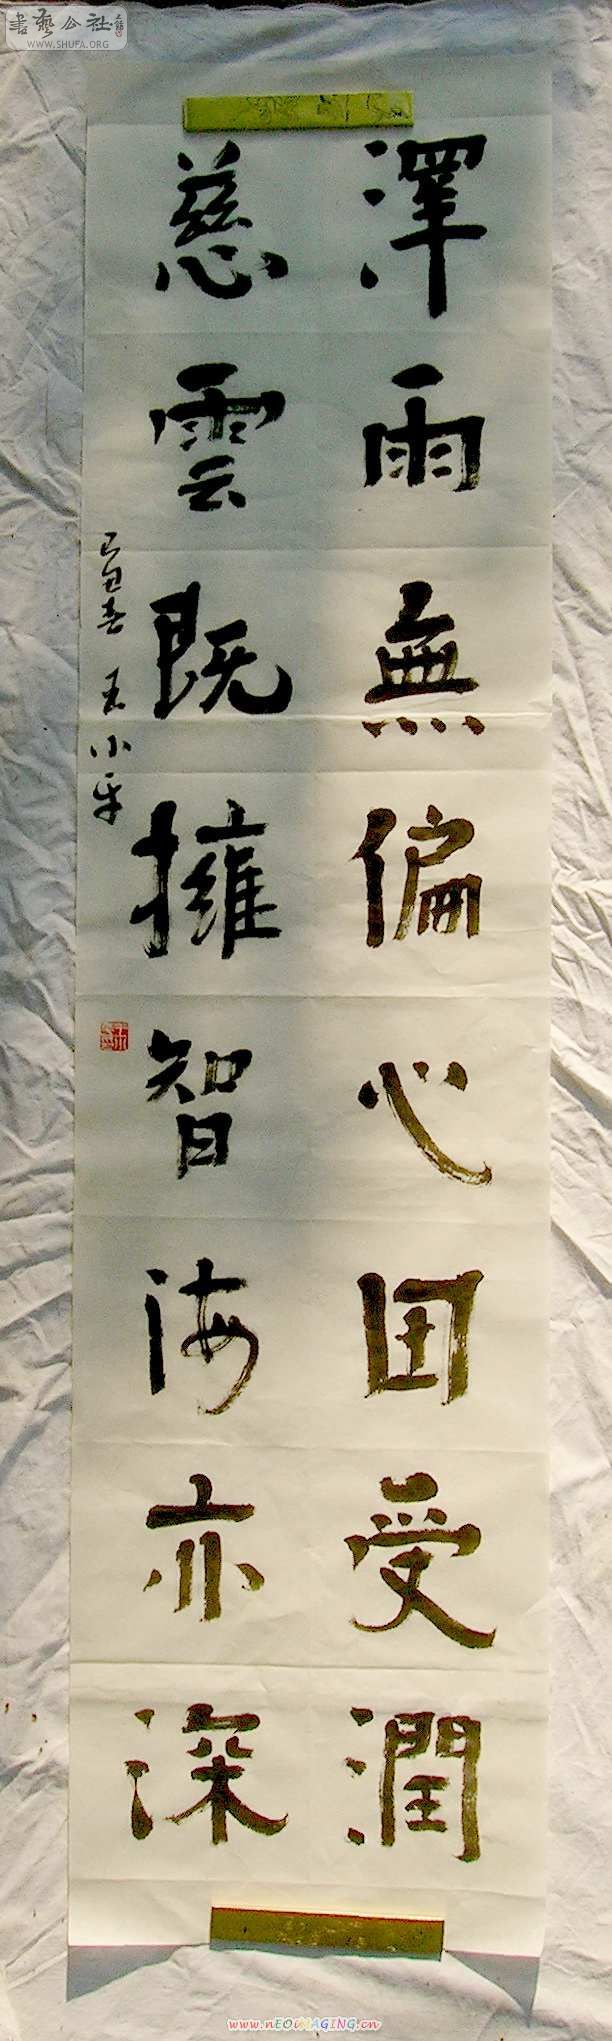 書藝公社
WWW.SHUFA.ORG
澤雨無偏心田受潤
慈雲既擁智海亦深
己丑春 王小平
www.nEOiMAGING.cn